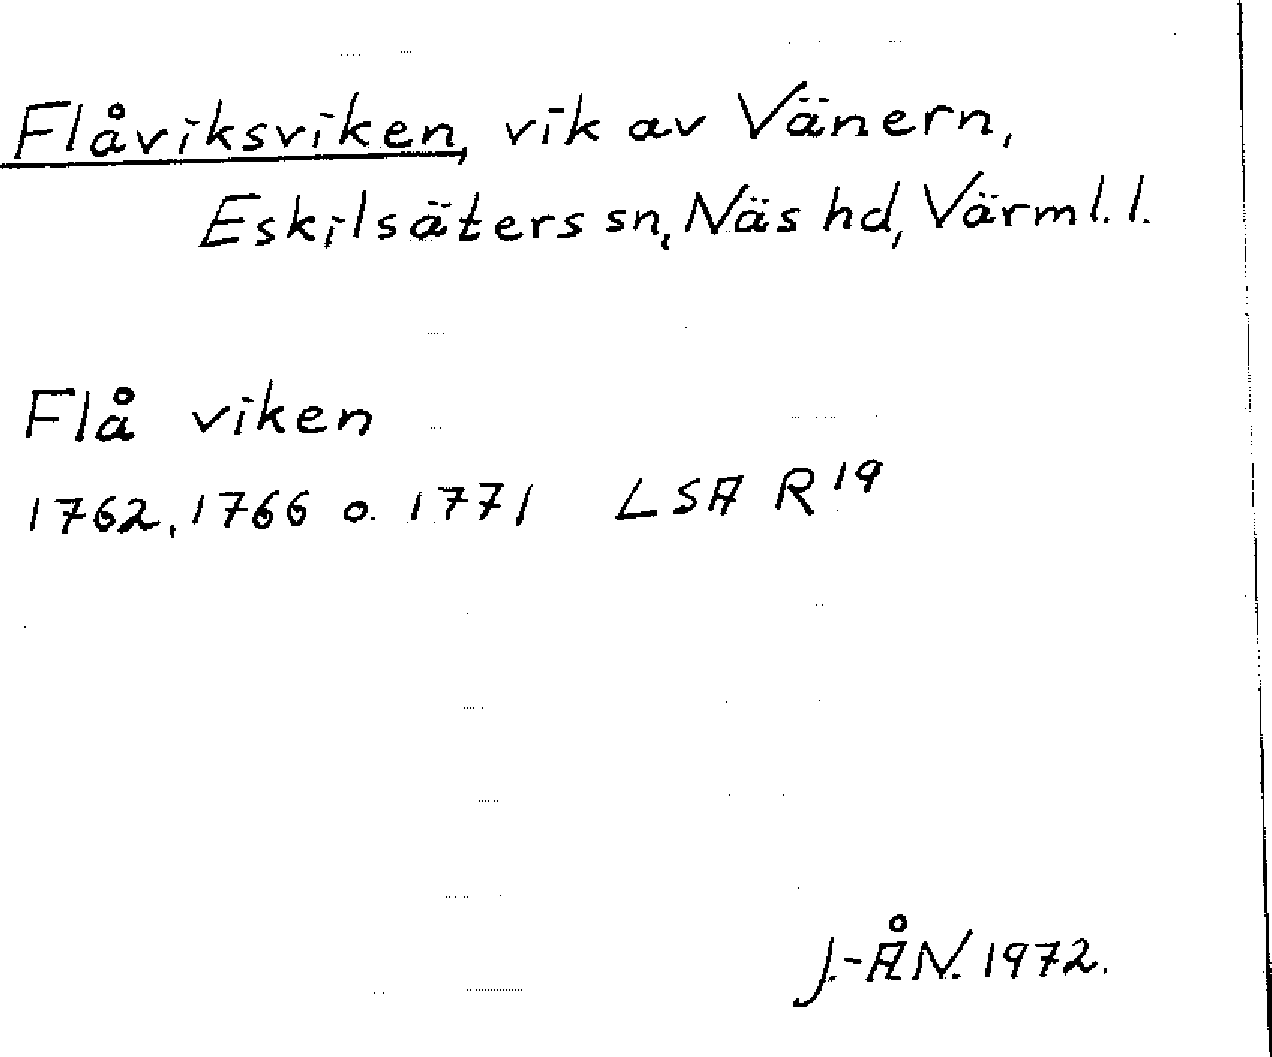 Flåviksviken, vik av Vänern,
Eskilsäters sn, Näs hd, Värml. l.
Flå viken
1762, 1766 o. 1771 LSA R 19
J.-ÅN. 1972.